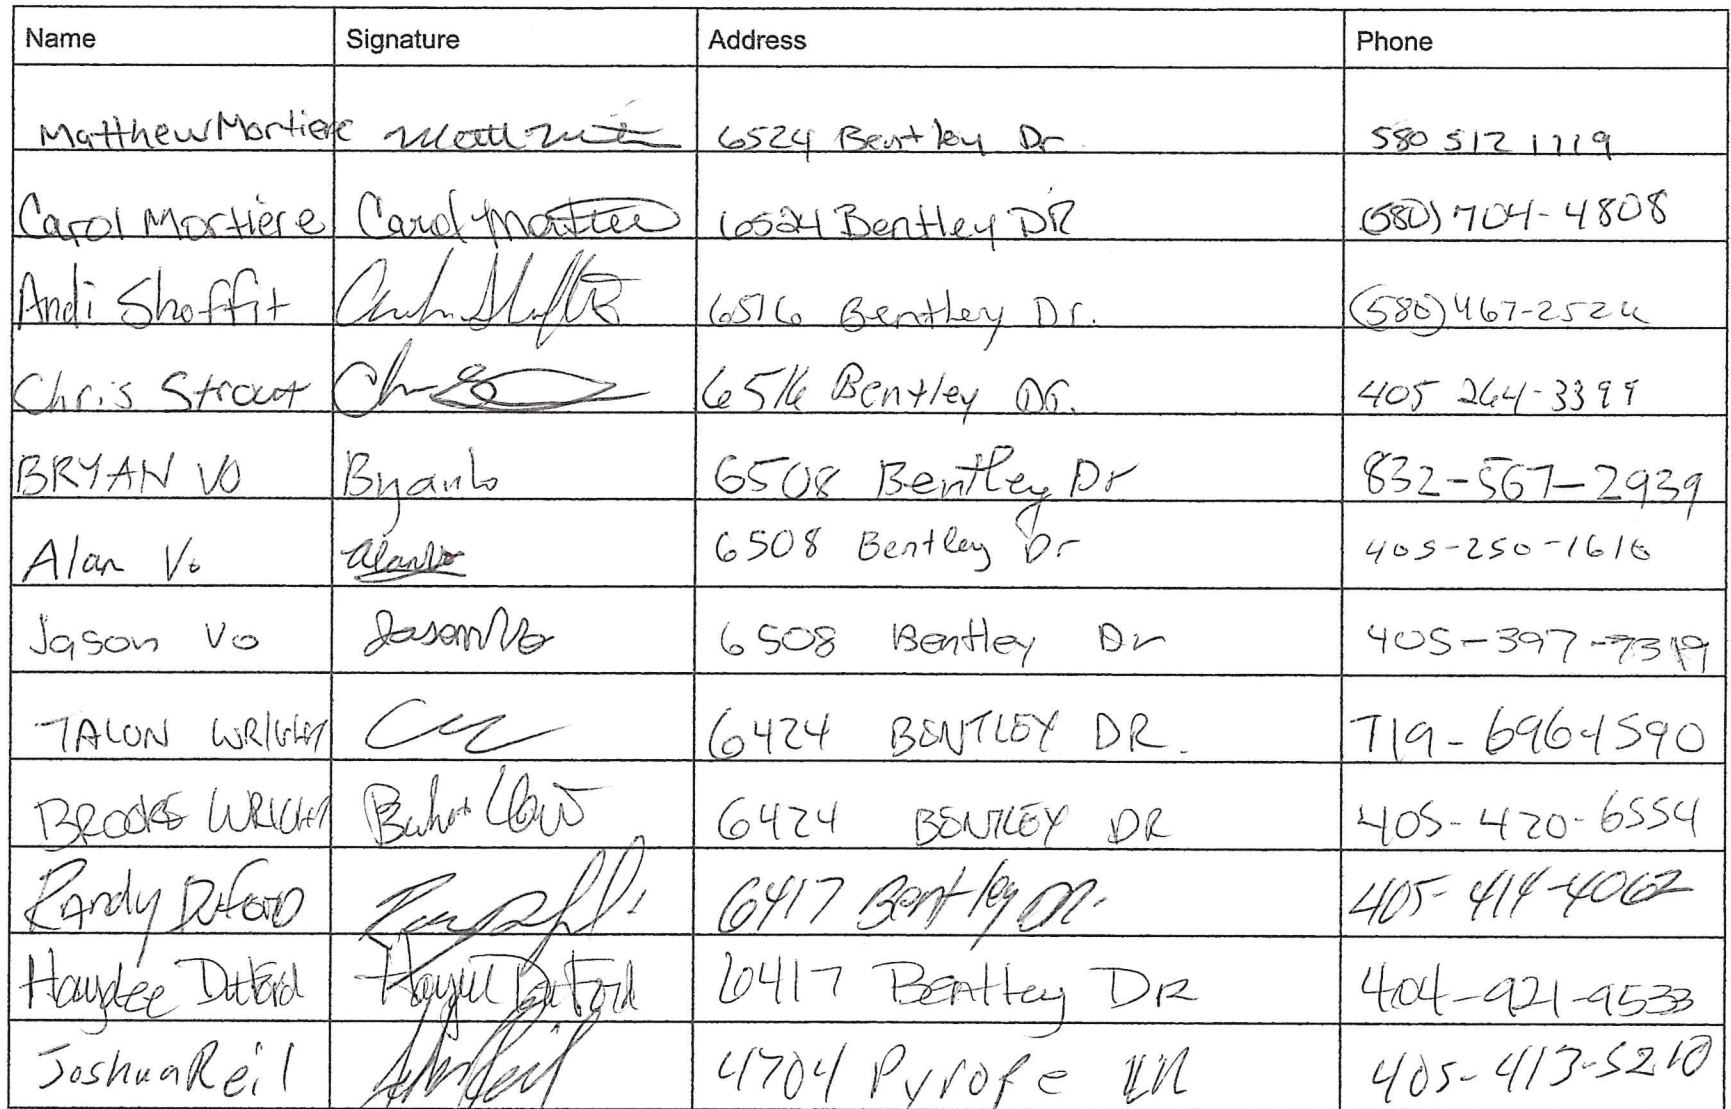 Name Signature Address Phone
Matthew Mortiere 6524 Bentley Dr 580 512 1119
Carol Mortiere Carol Mortiere 6524 Bentley DR (580) 704-4808
Andi Shoffit 6516 Bentley Dr. (580) 467-2524
Chris Strout 6516 Bentley Dr. 405 264-3399
BRYAN VO Bryan Vo 6508 Bentley Dr 832-567-2939
Alan Vo Alan Vo 6508 Bentley Dr 405-250-1616
Jason Vo Jason Vo 6508 Bentley Dr 405-397-7319
TALON WRIGHT 6424 BENTLEY DR. 719-696-1590
BROOKE WRIGHT 6424 BENTLEY DR 405-420-6554
Randy Duford 6417 Bentley DR. 405-414-4062
Haydee Duford Haydee Duford 6417 Bentley DR 404-921-9533
Joshua Reil 4704 Pyrope LN 405-413-5210